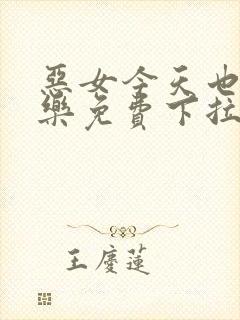 惡女今天也
樂免費下拉
王慶蓮